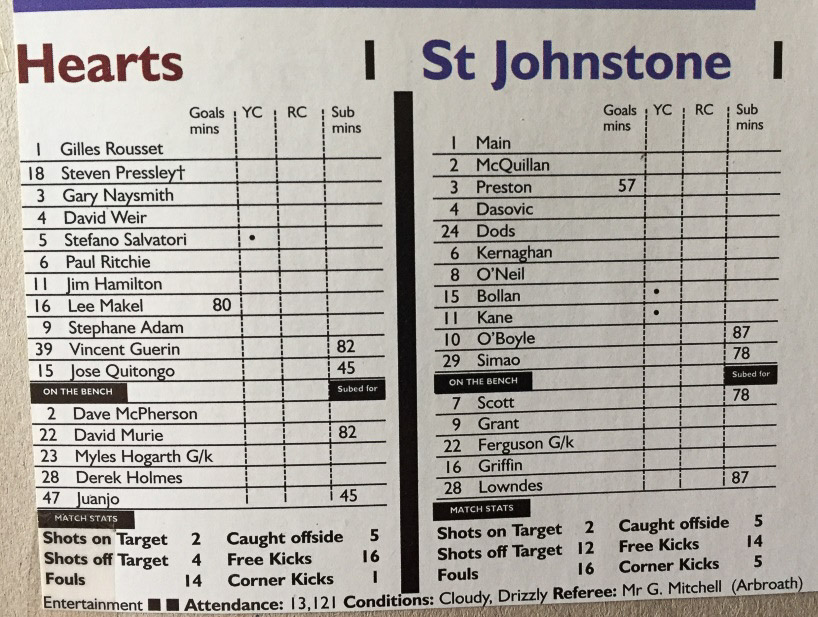 Hearts 1
Goals mins YC RC Sub mins
1 Gilles Rousset
18 Steven Pressley†
3 Gary Naysmith
4 David Weir
5 Stefano Salvatori •
6 Paul Ritchie
11 Jim Hamilton
16 Lee Makel 80
9 Stephane Adam
39 Vincent Guerin 82
15 Jose Quitongo 45
ON THE BENCH Subed for
2 Dave McPherson
22 David Murie 82
23 Myles Hogarth G/k
28 Derek Holmes
47 Juanjo 45
MATCH STATS
Shots on Target 2 Caught offside 5
Shots off Target 4 Free Kicks 16
Fouls 14 Corner Kicks 1
St Johnstone 1
Goals mins YC RC Sub mins
1 Main
2 McQuillan
3 Preston 57
4 Dasovic
24 Dods
6 Kernaghan
8 O'Neil
15 Bollan •
11 Kane •
10 O'Boyle 87
29 Simao 78
ON THE BENCH Subed for
7 Scott 78
9 Grant
22 Ferguson G/k
16 Griffin
28 Lowndes 87
MATCH STATS
Shots on Target 2 Caught offside 5
Shots off Target 12 Free Kicks 14
Fouls 16 Corner Kicks 5
Entertainment ■ ■ Attendance: 13,121 Conditions: Cloudy, Drizzly Referee: Mr G. Mitchell (Arbroath)